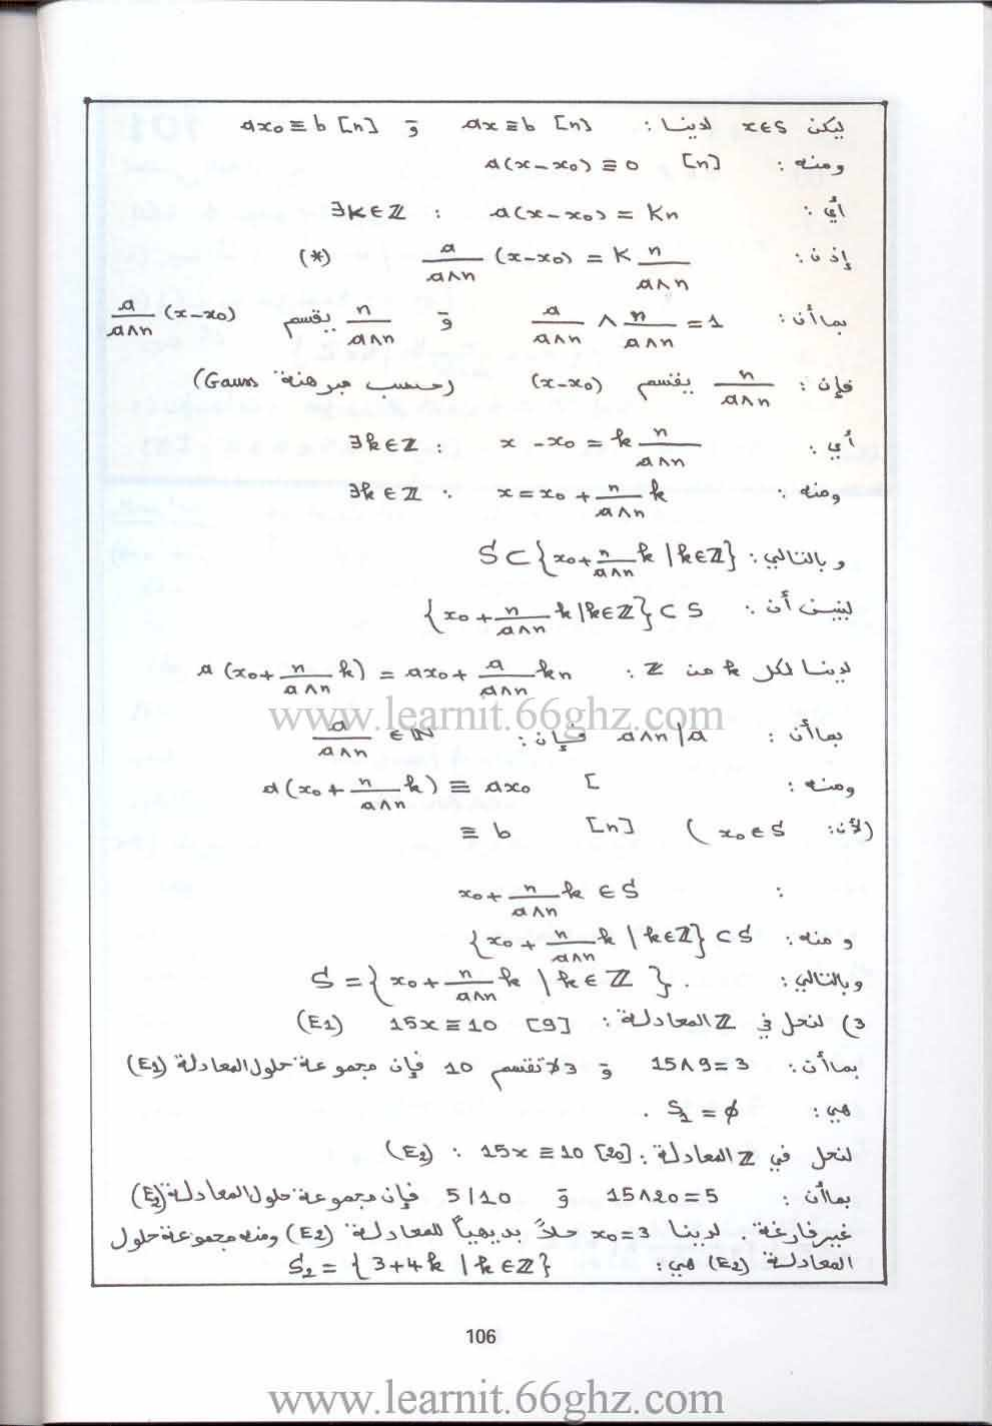 ليكن x∈S لدينا : ax≡b [n] و ax₀≡b [n]
ومنه : a(x-x₀)≡0 [n]
أي : ∃K∈ℤ : a(x-x₀) = Kn
إذن : a/(a∧n) (x-x₀) = K n/(a∧n) (*)
بما أن : a/(a∧n) ∧ n/(a∧n) = 1 و n/(a∧n) يقسم a/(a∧n) (x-x₀)
فإن : n/(a∧n) يقسم (x-x₀) (حسب مبرهنة Gauss)
أي : x-x₀ = k n/(a∧n) : ∃k∈ℤ
ومنه : x = x₀ + n/(a∧n) k : ∃k∈ℤ
وبالتالي : S⊂{x₀ + n/(a∧n) k | k∈ℤ}
لنبين أن : {x₀ + n/(a∧n) k | k∈ℤ}⊂S
لدينا لكل k من ℤ : a(x₀ + n/(a∧n) k) = ax₀ + a/(a∧n) kn
www.learnit.66ghz.com
بما أن : a∧n|a فإن : a/(a∧n) ∈ ℕ
ومنه : a(x₀ + n/(a∧n) k) ≡ ax₀ [
≡ b [n] (لأن : x₀∈S)
: x₀ + n/(a∧n) k ∈ S
ومنه : {x₀ + n/(a∧n) k | k∈ℤ}⊂S
وبالتالي : S = {x₀ + n/(a∧n) k | k∈ℤ}.
3) لنحل في ℤ المعادلة : 15x≡10 [9] (E1)
بما أن : 15∧9=3 و 3 لا تقسم 10 فإن مجموعة حلول المعادلة (E1)
هي : S₁ = ∅ .
لنحل في ℤ المعادلة : 15x≡10 [20] : (E2)
بما أن : 15∧20=5 و 5|10 فإن مجموعة حلول المعادلة (E2)
غير فارغة . لدينا x₀=3 حلاً بديهياً للمعادلة (E2) ومنه مجموعة حلول
المعادلة (E2) هي : S₂ = {3+4k | k∈ℤ}
106
www.learnit.66ghz.com